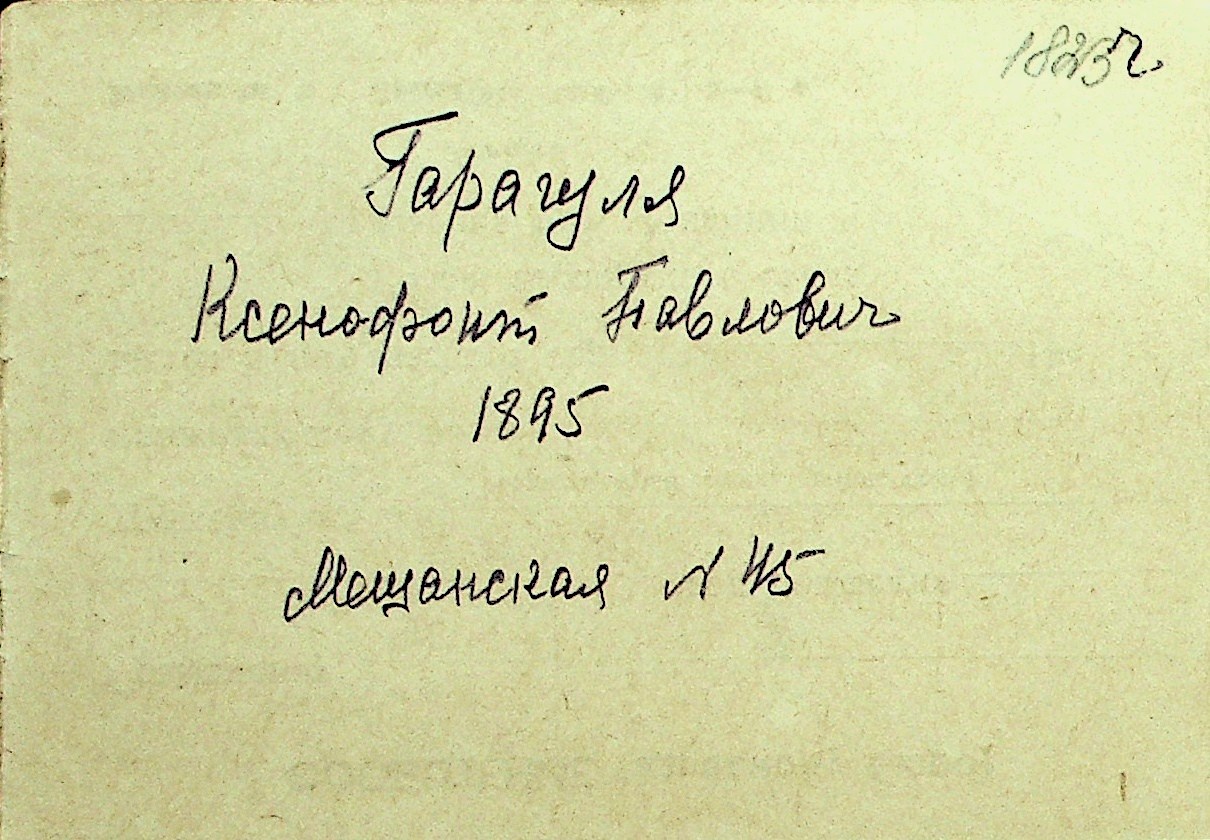 Гарагуля
Ксенофонт Павлович
1895
Мещанская N 45